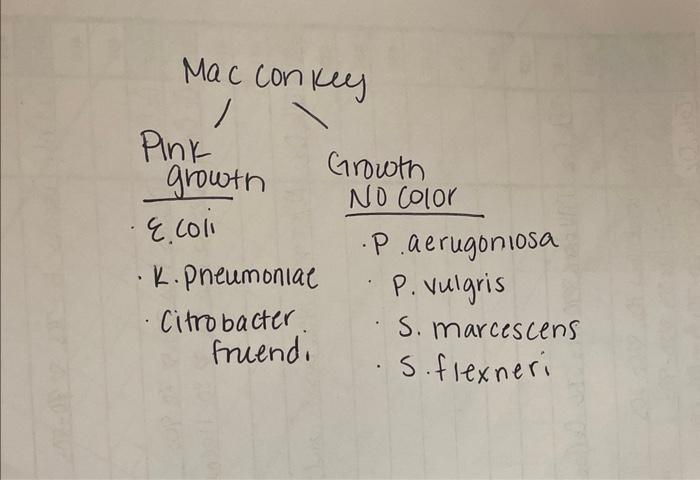 Mac conkey
Pink
growth
· E. coli
· K. pneumoniae
· Citrobacter
fruendi
Growth
NO COlOr
· P. aerugoniosa
· P. vulgris
· S. marcescens
· S. flexneri